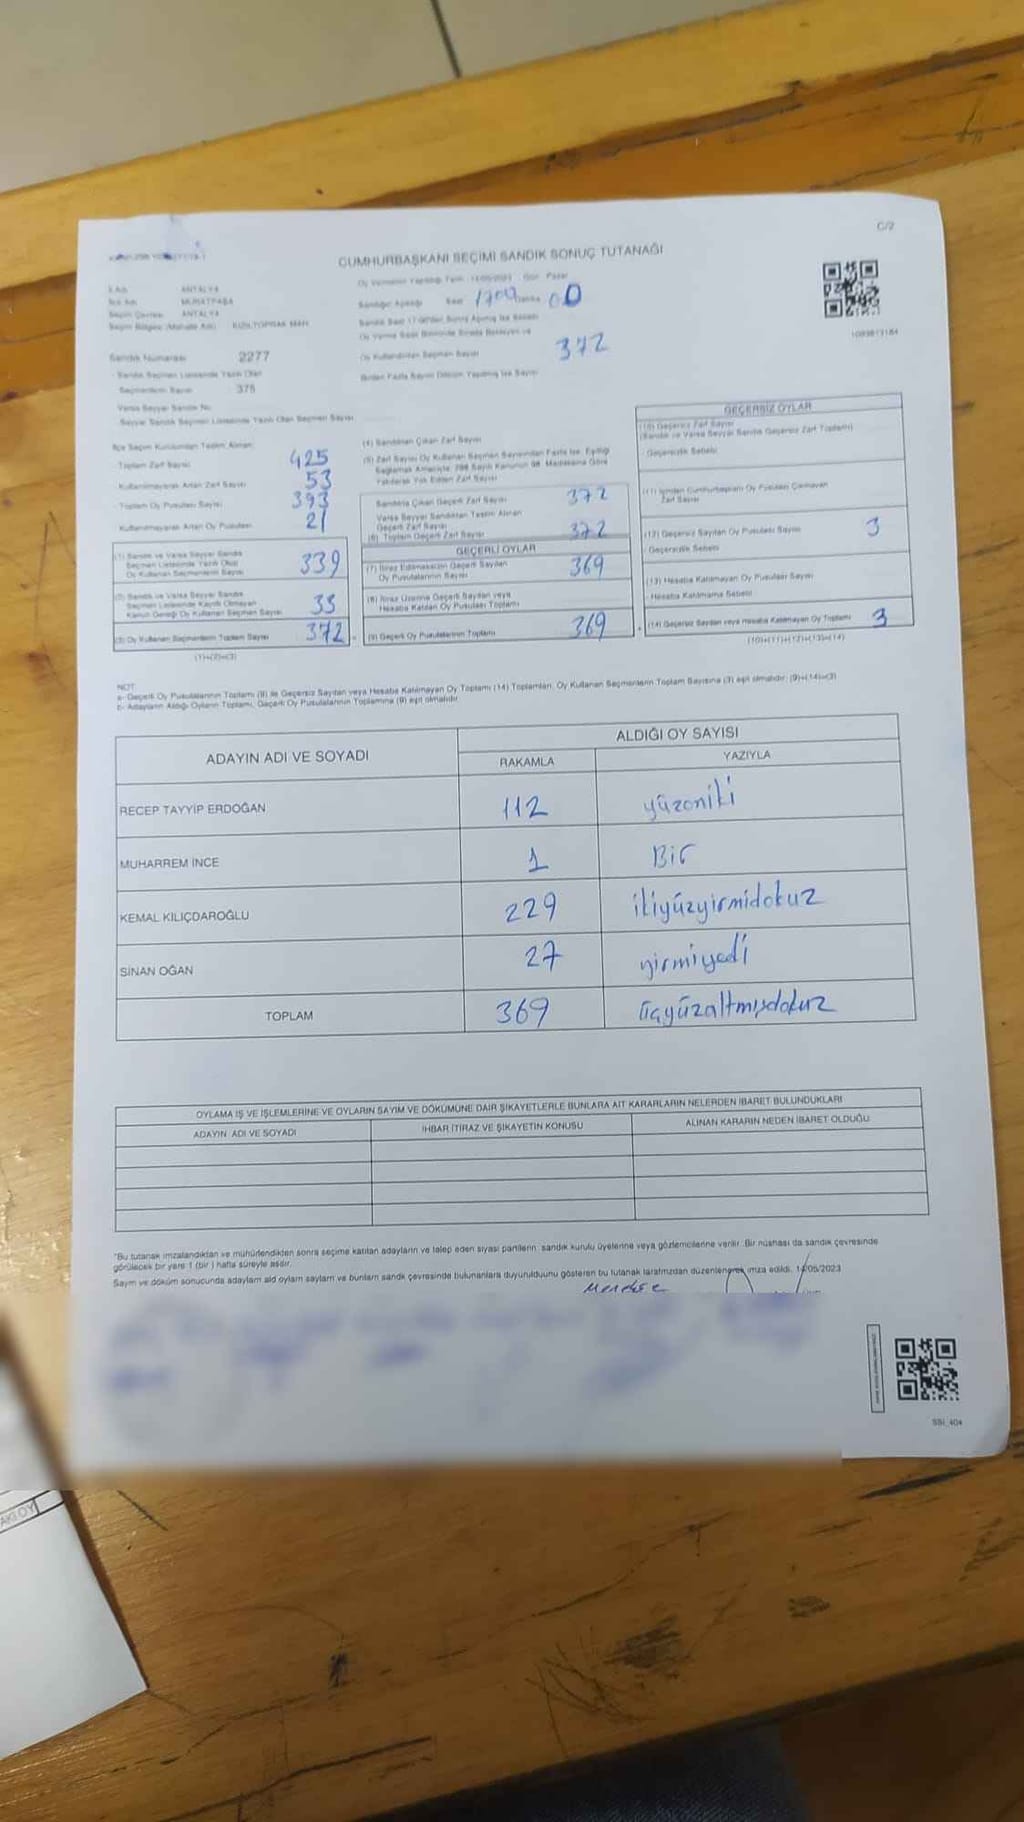 C/2
CUMHURBAŞKANI SEÇİMİ SANDIK SONUÇ TUTANAĞI
İl Adı ANTALYA
İlçe Adı MURATPAŞA
Seçim Çevresi ANTALYA
Seçim Bölgesi (Mahalle Adı) KIZILTOPRAK MAH.
Sandık Numarası 2277
Sandık Seçmen Listesinde Yazılı Olan
Seçmenlerin Sayısı 375
Oy Kullandırılan Seçmen Sayısı 372
Birden Fazla Sayım Döküm Yapılmış İse Sayısı
İlçe Seçim Kurulundan Teslim Alınan
Toplam Zarf Sayısı 425
Kullanılmayarak Artan Zarf Sayısı 53
Toplam Oy Pusulası Sayısı 393
Kullanılmayarak Artan Oy Pusulası 21
(1) Sandık ve Varsa Seyyar Sandık
Seçmen Listesinde Yazılı Olup
Oy Kullanan Seçmenlerin Sayısı 339
(2) Sandık ve Varsa Seyyar Sandık
Seçmen Listesinde Kayıtlı Olmayan
Kanun Gereği Oy Kullanan Seçmen Sayısı 33
(3) Oy Kullanan Seçmenlerin Toplam Sayısı 372
(1)+(2)=(3)
(4) Sandıktan Çıkan Zarf Sayısı
(5) Zarf Sayısı Oy Kullanan Seçmen Sayısından Fazla İse, Eşitliği
Sağlamak Amacıyla, 298 Sayılı Kanunun 98. Maddesine Göre
Yakılarak Yok Edilen Zarf Sayısı
Sandıkta Çıkan Geçerli Zarf Sayısı 372
Varsa Seyyar Sandıktan Teslim Alınan
Geçerli Zarf Sayısı
(6) Toplam Geçerli Zarf Sayısı 372
GEÇERLİ OYLAR
(7) İtiraz Edilmeksizin Geçerli Sayılan
Oy Pusulalarının Sayısı 369
(8) İtiraz Üzerine Geçerli Sayılan veya
Hesaba Katılan Oy Pusulası Toplamı
(9) Geçerli Oy Pusulalarının Toplamı 369
GEÇERSİZ OYLAR
(10) Geçersiz Zarf Sayısı
(Sandık ve Varsa Seyyar Sandık Geçersiz Zarf Toplamı)
Geçersizlik Sebebi
(11) İçinden Cumhurbaşkanı Oy Pusulası Çıkmayan
Zarf Sayısı
(12) Geçersiz Sayılan Oy Pusulası Sayısı 3
Geçersizlik Sebebi
(13) Hesaba Katılmayan Oy Pusulası Sayısı
Hesaba Katılmama Sebebi
(14) Geçersiz Sayılan veya Hesaba Katılmayan Oy Toplamı 3
(10)+(11)+(12)+(13)=(14)
NOT:
a- Geçerli Oy Pusulalarının Toplamı (9) ile Geçersiz Sayılan veya Hesaba Katılmayan Oy Toplamı (14) Toplamları, Oy Kullanan Seçmenlerin Toplam Sayısına (3) eşit olmalıdır. (9)+(14)=(3)
b- Adayların Aldığı Oyların Toplamı, Geçerli Oy Pusulalarının Toplamına (9) eşit olmalıdır.
ADAYIN ADI VE SOYADI ALDIĞI OY SAYISI
RAKAMLA YAZIYLA
RECEP TAYYİP ERDOĞAN 112 yüzoniki
MUHARREM İNCE 1 Bir
KEMAL KILIÇDAROĞLU 229 ikiyüzyirmidokuz
SİNAN OĞAN 27 yirmiyedi
TOPLAM 369 üçyüzaltmışdokuz
OYLAMA İŞ VE İŞLEMLERİNE VE OYLARIN SAYIM VE DÖKÜMÜNE DAİR ŞİKAYETLERLE BUNLARA AİT KARARLARIN NELERDEN İBARET BULUNDUKLARI
ADAYIN ADI VE SOYADI İHBAR İTİRAZ VE ŞİKAYETİN KONUSU ALINAN KARARIN NEDEN İBARET OLDUĞU
"Bu tutanak imzalandıktan ve mühürlendikten sonra seçime katılan adayların ve talep eden siyasi partilerin, sandık kurulu üyelerine veya gözlemcilerine verilir. Bir nüshası da sandık çevresinde
görülecek bir yere 1 (bir) hafta süreyle asılır.
14/05/2023
SBİ_404